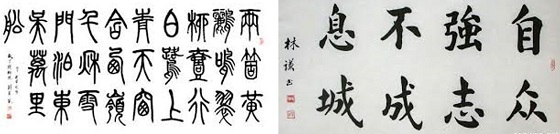 兩箇黃
鸝鳴翠
柳壹行
白鷺上
青天窗
含西嶺
千秋雪
門泊東
吳萬里
船
自強不息
众志成城
林